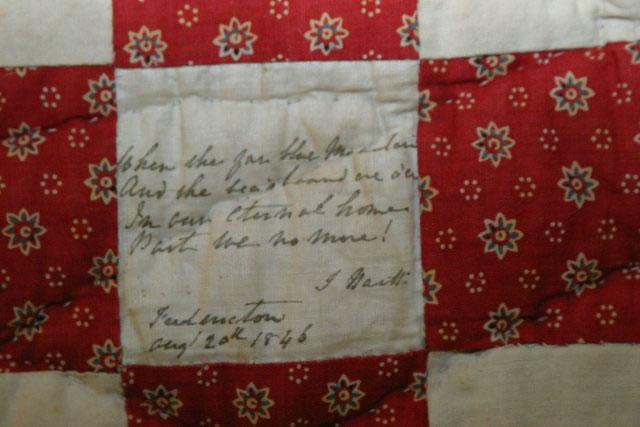 When the far blue Mountain
And the sea's bound are o'er
In our eternal home
Part we no more!
Fredericton
augt 20th 1846